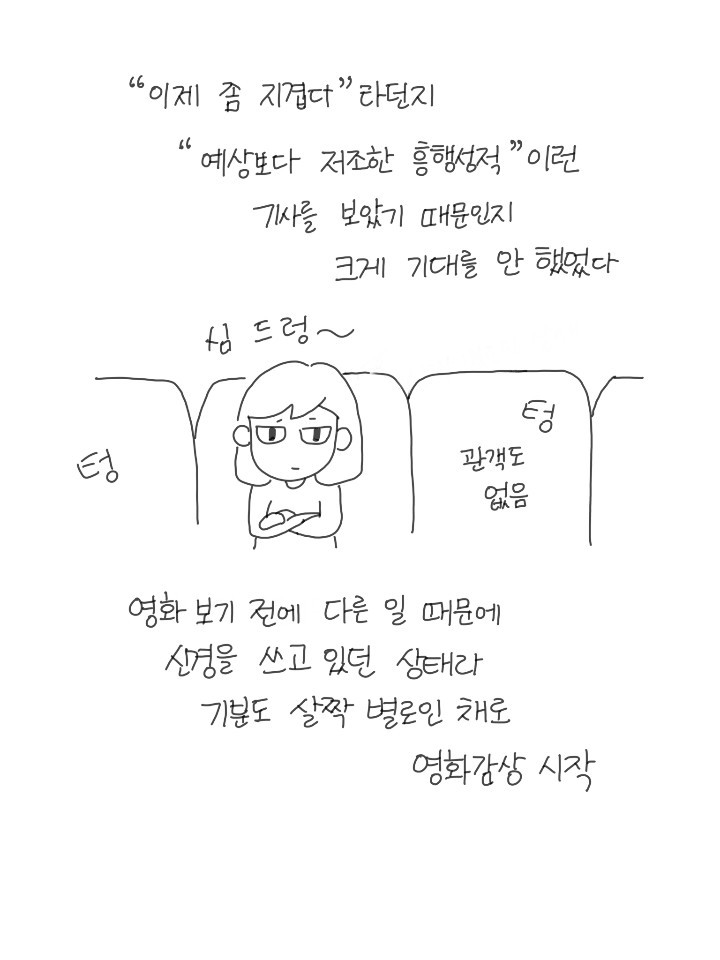 “이제 좀 지겹다”라던지
“예상보다 저조한 흥행성적”이런
기사를 보았기 때문인지
크게 기대를 안 했었다
심 드렁~
텅
텅
관객도
없음
영화 보기 전에 다른 일 때문에
신경을 쓰고 있던 상태라
기분도 살짝 별로인 채로
영화감상 시작